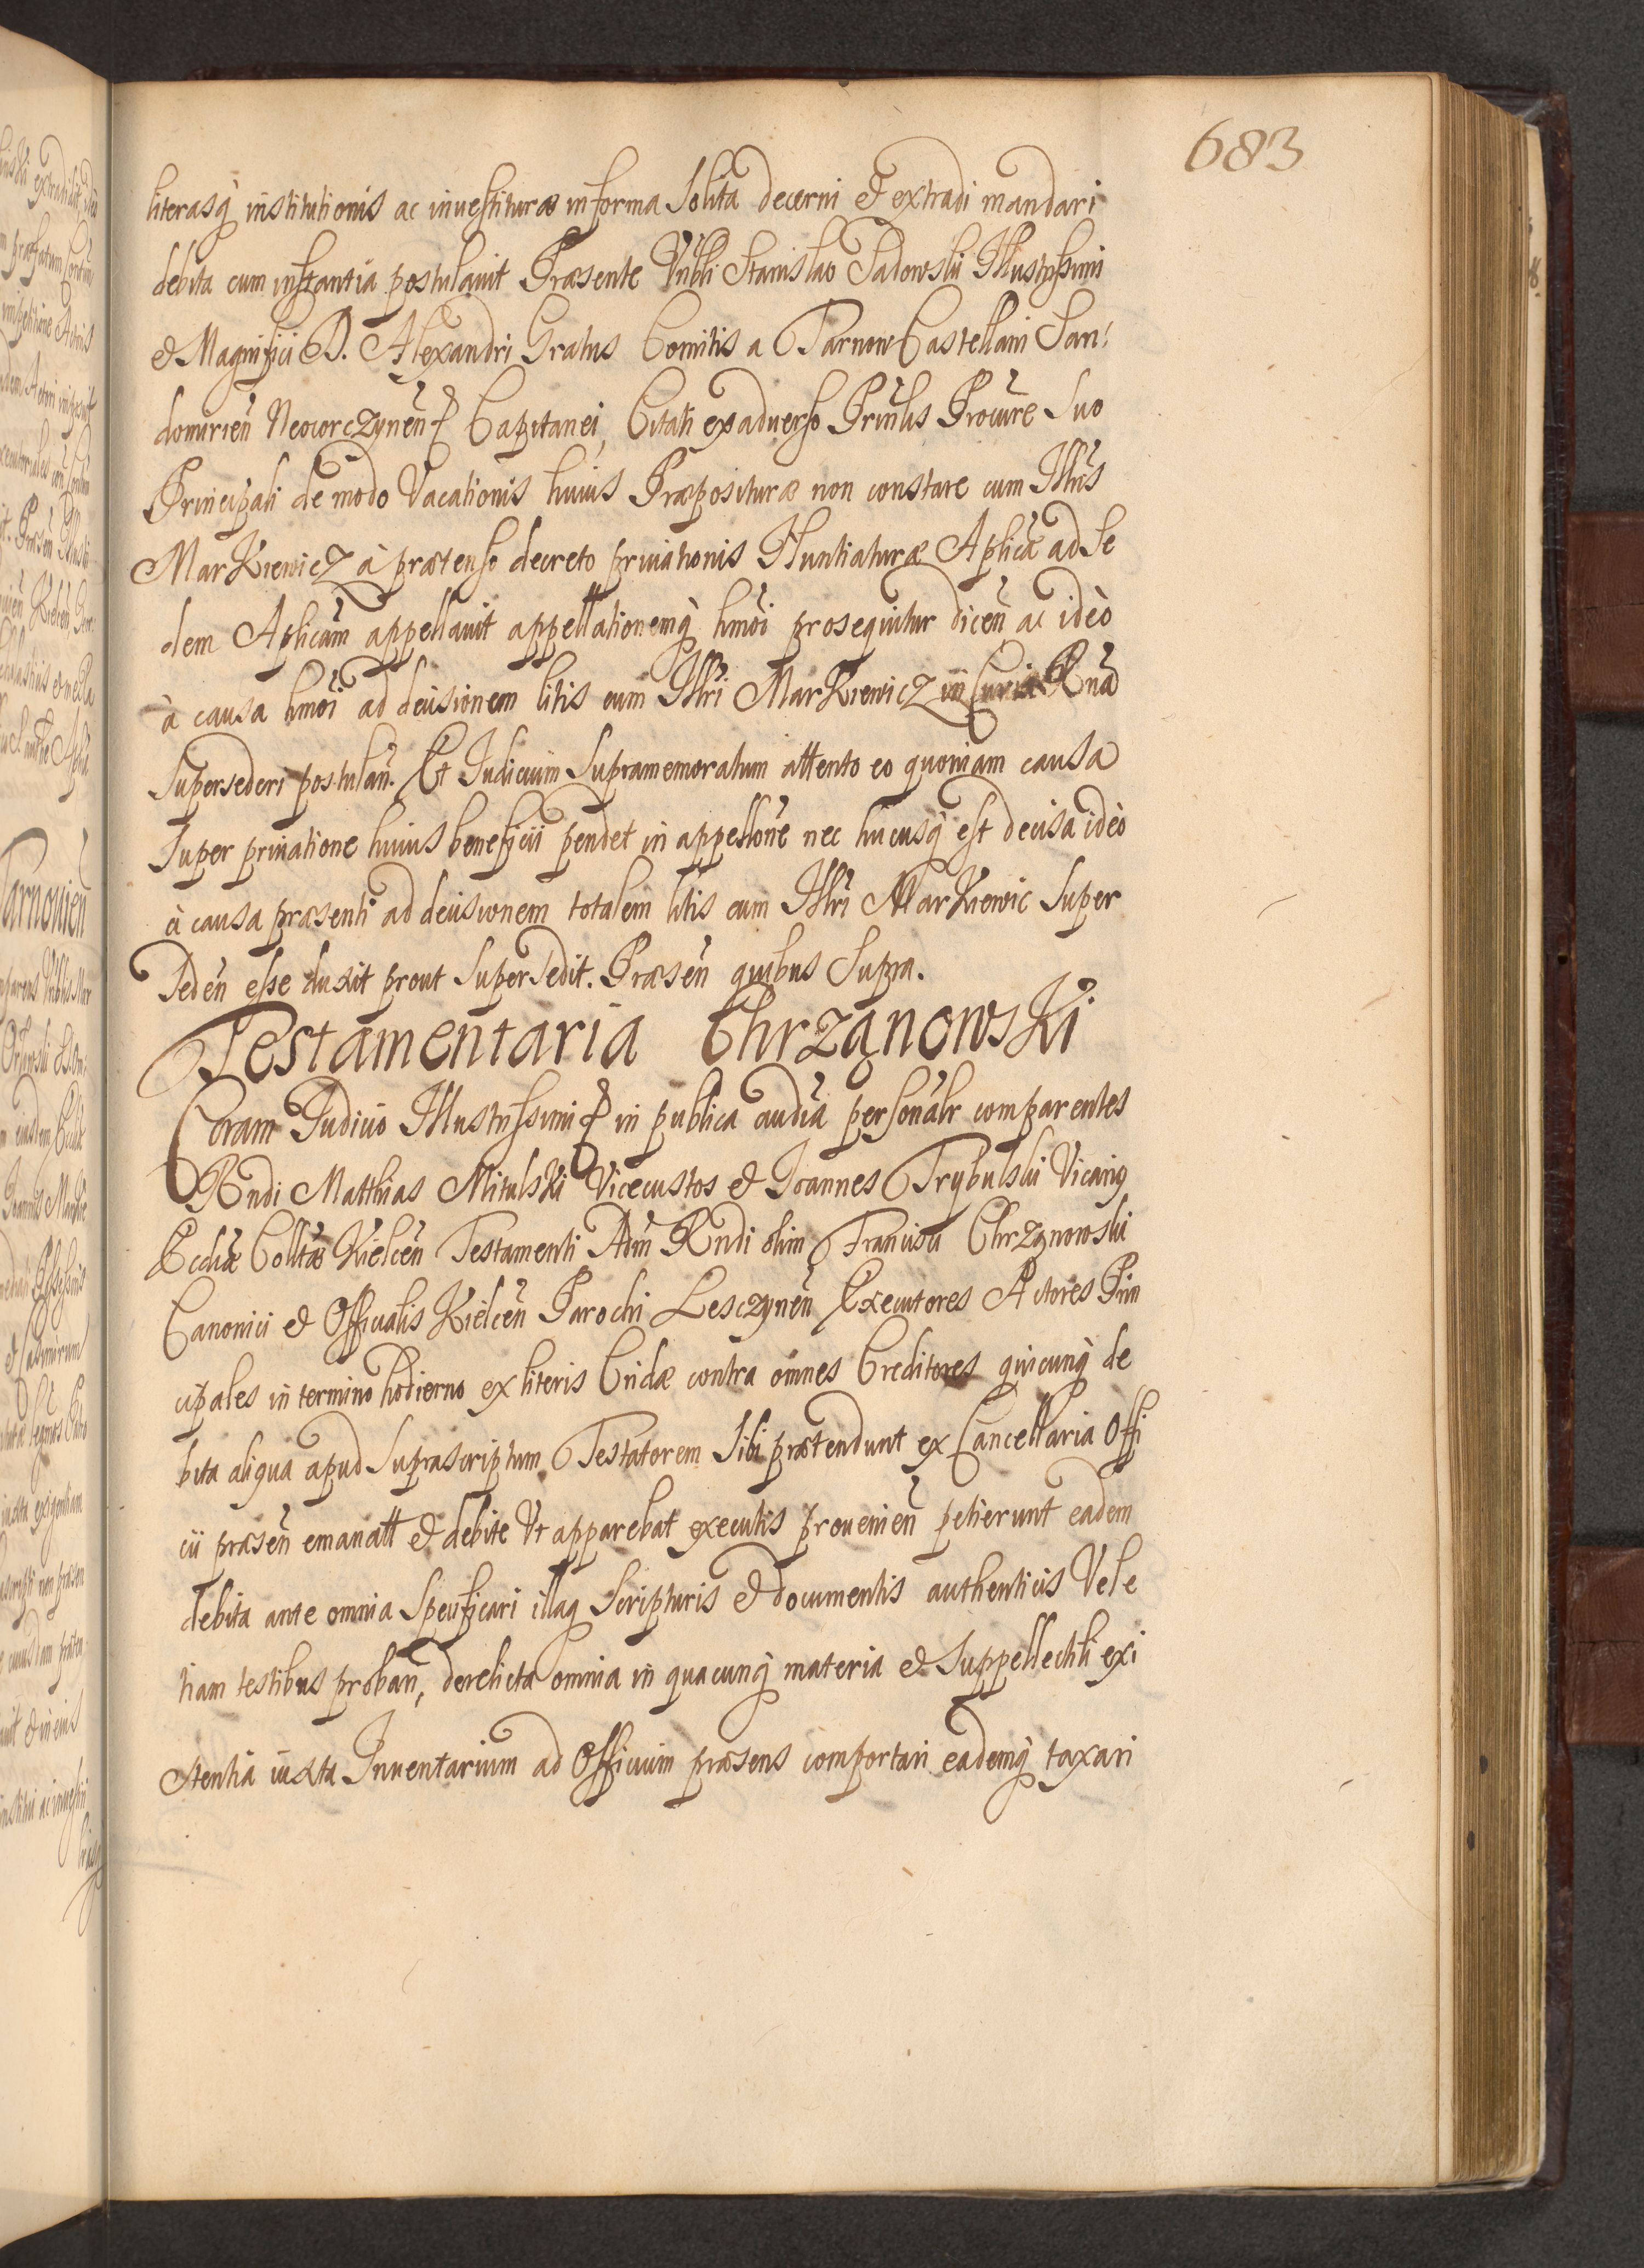 683
literasq̀ institutionis ac inuestituræ in forma Solita decerni et extradi mandari
debita cum instantia postulauit Præsente Vrbli Stanislao Sadowski Illustrissimi
et Magnifici D. Alexandri Gratus Comitis a Tarnow Castellani San:
domirien̄ Neocorczynen̄ Capitanei, Citati ex aduerso Prinlis Procure Suo
Principali de modo Vacationis huius Præposituræ non constare cum Illris
MarKiewicz à prætenso decreto priuationis Nuntiaturæ Aplicæ ad Se
dem Aplicam appellauit appellationemq̀ hmoi prosequitur dicen̄ ac ideò
à causa hmoi ad decisionem litis cum Illri MarKiewicz in Curia Rna
Supersederi postulan̄. Et Iudicium Supramemoratum attento eo quoniam causa
Super priuatione huius beneficii pendet in appellone nec hucusq̀ est decisa ideò
à causa præsenti ad decisionem totalem litis cum Illri MarKiewic Super
Seden̄ esse duxit prout Supersedit. Præsen̄ quibus Supra.
Testamentaria ChrząnowsKi
Coram Iudicio Illustrissimi in publica audiā personalr comparentes
Rndi Matthias MitulsKi Vicecustos et Ioannes Trybulski Vicarius
Ecclīæ Colltæ Kielcen̄ Testamenti Adm Rndi olim Francisci Chrząnowski
Canonici et Officialis Kielcen̄ Parochi Lesczynen̄ Executores Actores Prin
cipales in termino hodierno ex literis Cridæ contra omnes Creditores quicunq̀ de
bita aliqua apud Suprascriptum Testatorem Sibi prætendunt ex Cancellaria Offi
cii præsen̄ emanatt et debite Vt apparebat executis prouenien̄ petierunt eadem
debita ante omnia Specificari illaq Scripturis et documentis authenticis Vel e
tiam testibus proban̄, derelicta omnia in quacunq̀ materia et Suppellectili exi
stentia iuxta Inuentarium ad Officium præsens comportari eademq̀ taxari